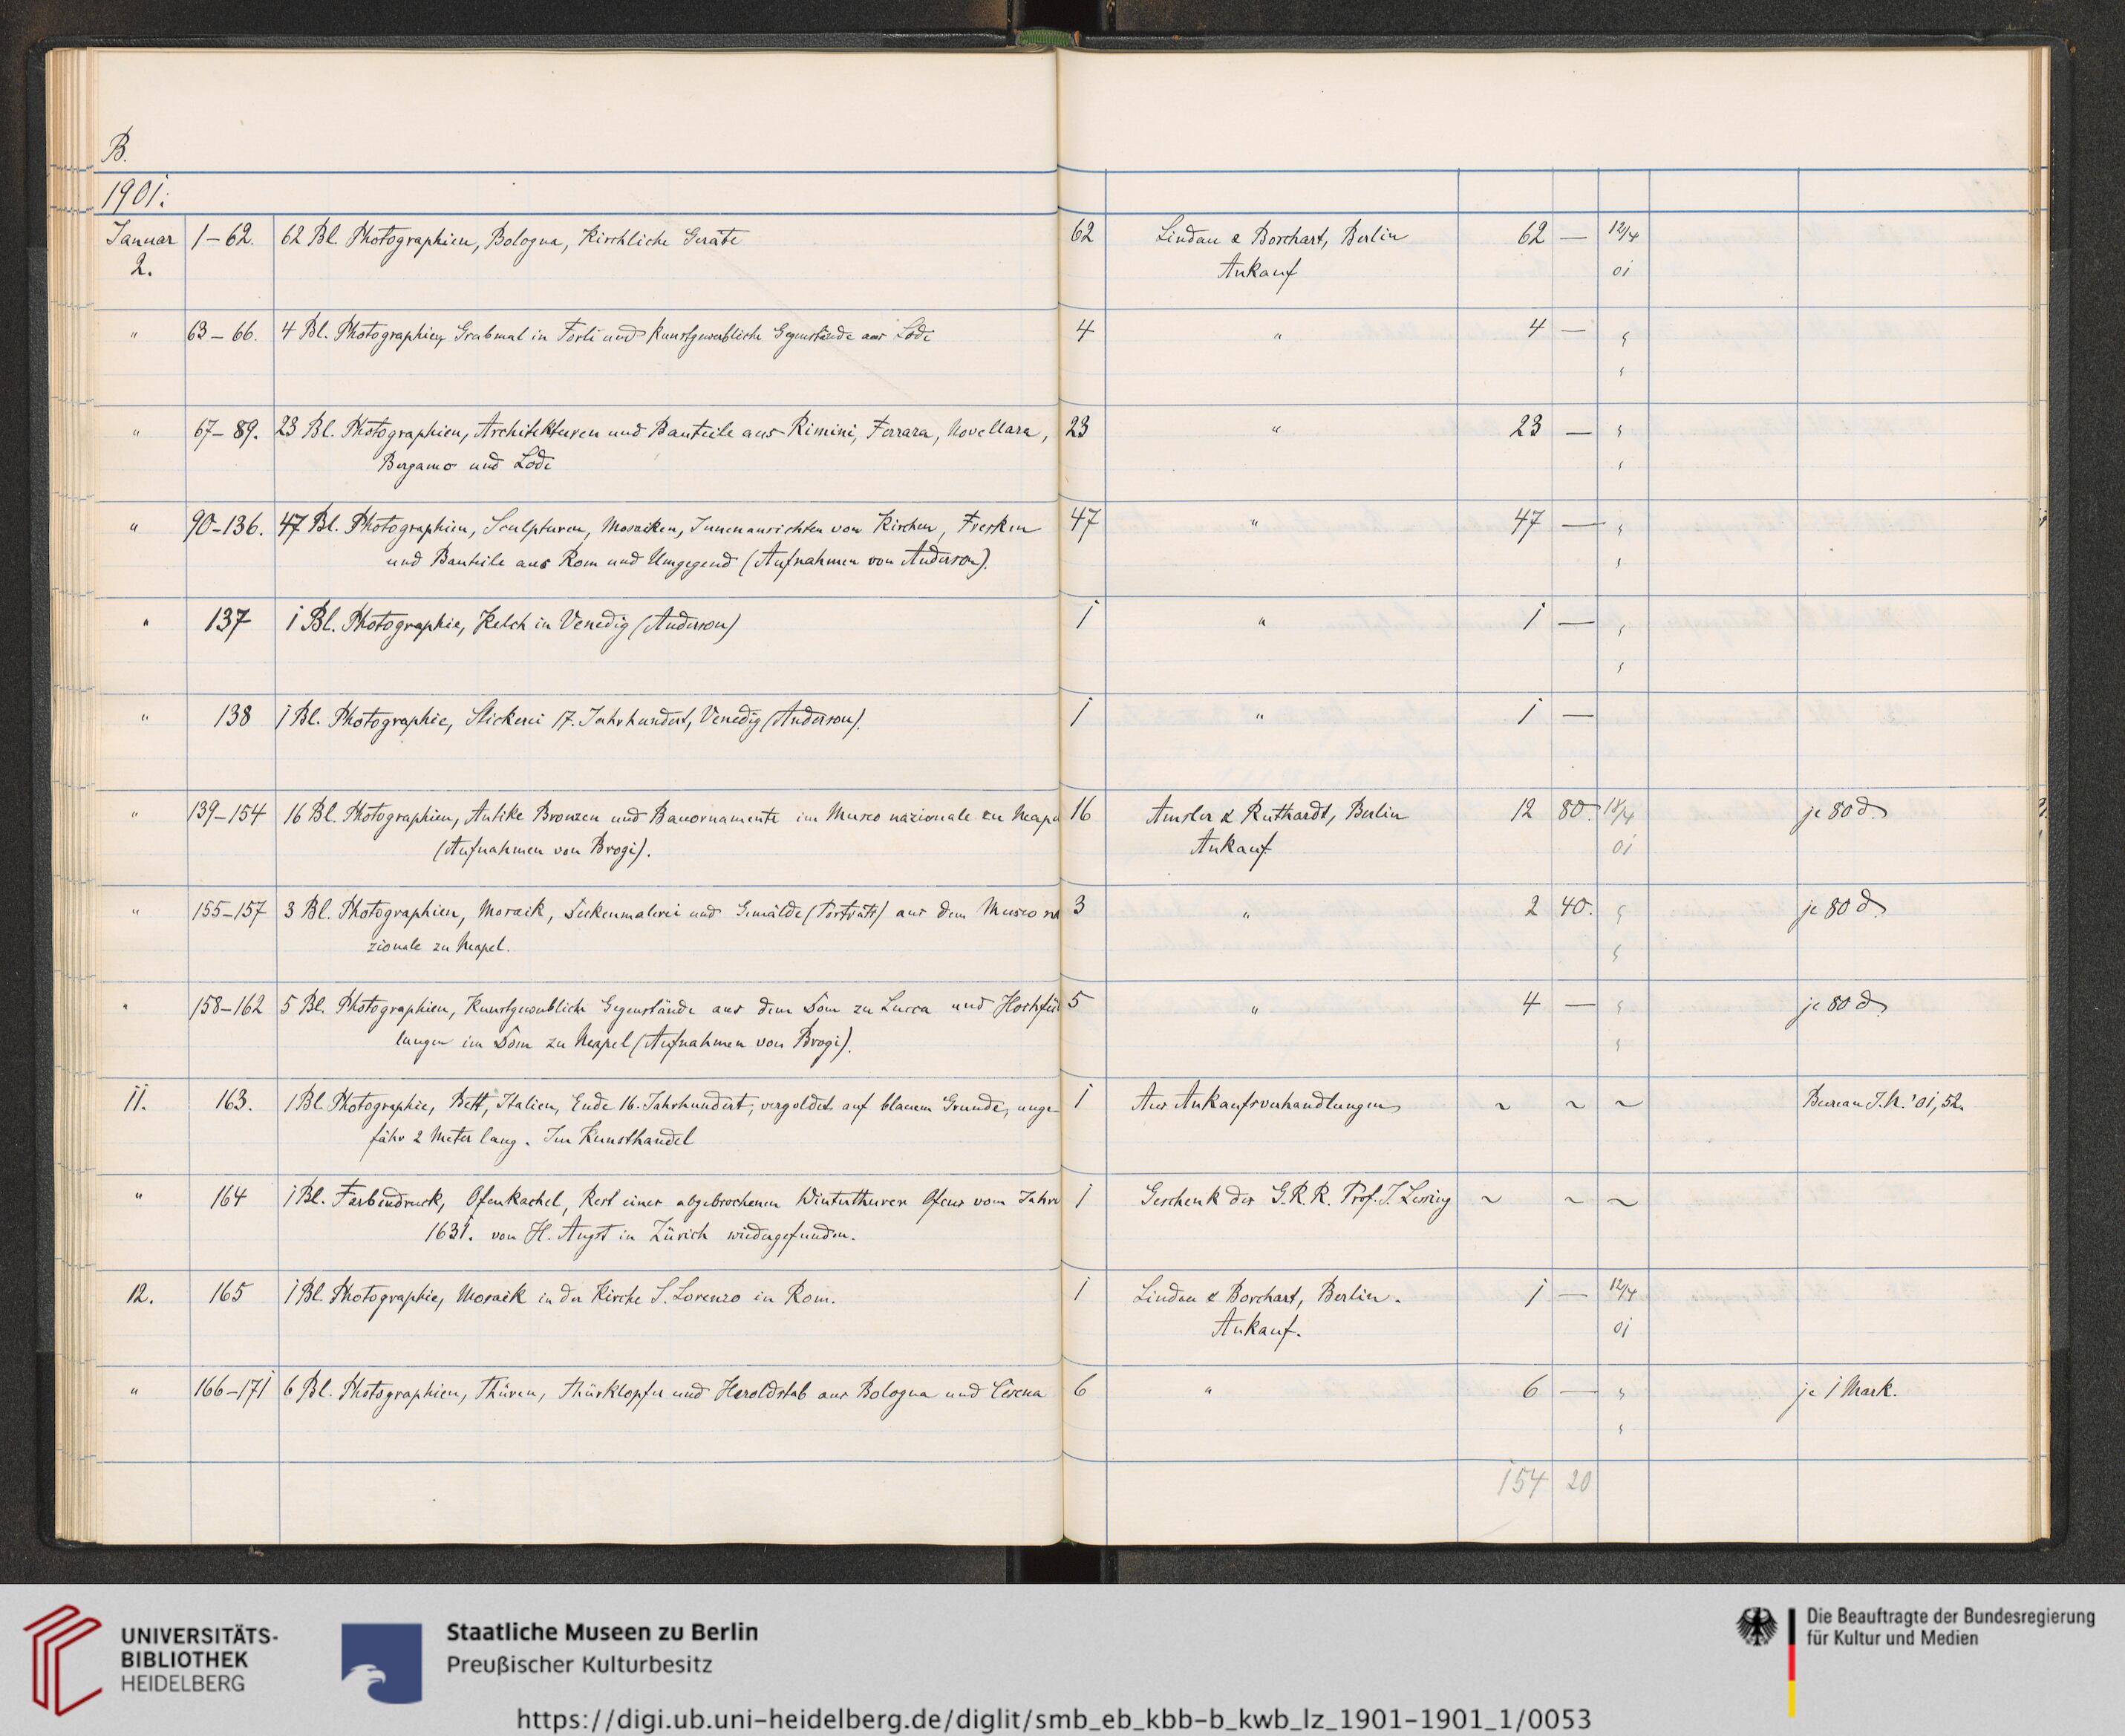 B.
1901.
Januar 2. 1-62. 62 Bl. Photographien, Bologna, Kirchliche Geräte 62 Lindau & Borchart, Berlin 62 — 12/4
Ankauf 01
" 63-66. 4 Bl. Photographien, Grabmal in Forli und Kunstgewerbliche Gegenstände aus Lodi 4 " 4 — "
"
" 67-89. 23 Bl. Photographien, Architekturen und Bauteile aus Rimini, Ferrara, Novellara, 23 " 23 — "
Bergamo und Lodi "
" 90-136. 47 Bl. Photographien, Sculpturen, Mosaiken, Innenansichten von Kirchen, Fresken 47 " 47 — "
und Bauteile aus Rom und Umgegend (Aufnahmen von Anderson). "
" 137 1 Bl. Photographie, Kelch in Venedig (Anderson) 1 " 1 — "
"
" 138 1 Bl. Photographie, Stickerei 17. Jahrhundert, Venedig (Anderson). 1 " 1 —
" 139-154 16 Bl. Photographien, Antike Bronzen und Bauornamente im Museo nazionale zu Neapel 16 Amsler & Ruthardt, Berlin 12 80. 18/4 je 80 d.
(Aufnahmen von Brogi). Ankauf 01
" 155-157 3 Bl. Photographien, Mosaik, Deckenmalerei und Gemälde (Porträts) aus dem Museo na 3 " 2 40. " je 80 d.
zionale zu Neapel. "
" 158-162 5 Bl. Photographien, Kunstgewerbliche Gegenstände aus dem Dom zu Lucca und Hochfül 5 " 4 — " je 80 d.
lungen im Dom zu Neapel (Aufnahmen von Brogi). "
11. 163. 1 Bl. Photographie, Bett, Italien, Ende 16. Jahrhundert, vergoldet auf blauem Grunde, unge- 1 Aus Ankaufsverhandlungen ~ ~ ~ Bureau J.N. '01, 52.
fähr 2 Meter lang. Im Kunsthandel
" 164 1 Bl. Farbendruck, Ofenkachel, Rest eines abgebrochenen Winterthurer Ofens vom Jahre 1 Geschenk des G.R.R. Prof. J. Lessing ~ ~ ~
1631. von H. Angst in Zürich wiedergefunden.
12. 165 1 Bl. Photographie, Mosaik in der Kirche S. Lorenzo in Rom. 1 Lindau & Borchart, Berlin. 1 — 12/4
Ankauf. 01
" 166-171 6 Bl. Photographien, Thüren, Thürklopfer und Heroldstab aus Bologna und Cesena 6 " 6 — " je 1 Mark.
"
154 20
UNIVERSITÄTS-
BIBLIOTHEK
HEIDELBERG
Staatliche Museen zu Berlin
Preußischer Kulturbesitz
Die Beauftragte der Bundesregierung
für Kultur und Medien
https://digi.ub.uni-heidelberg.de/diglit/smb_eb_kbb-b_kwb_lz_1901-1901_1/0053